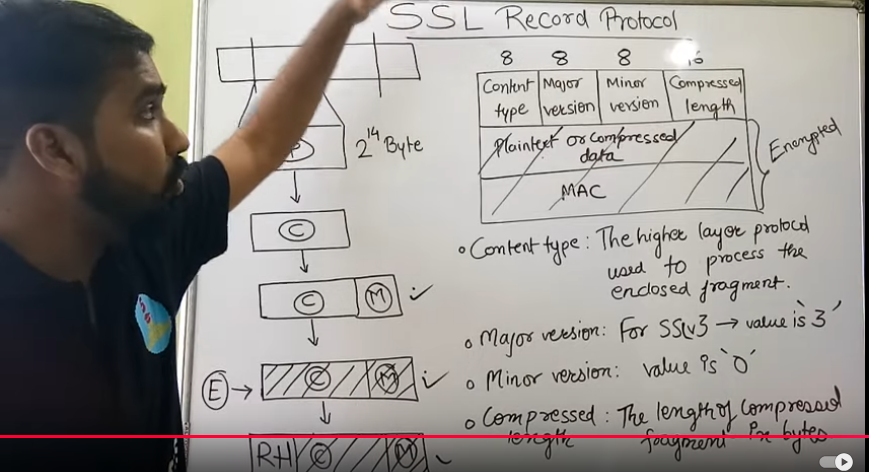 SSL Record Protocol
8 8 8 16
Content type
Major version
Minor version
Compressed length
Plaintext or compressed data
MAC
Encrypted
P
2^14 Byte
C
C M
E C M
RH C M
• Content type : The higher layer protocol
used to process the
enclosed fragment.
• Major version: For SSLv3 → value is '3'
• Minor version: value is '0'
• Compressed : The length of compressed
length fragment in bytes